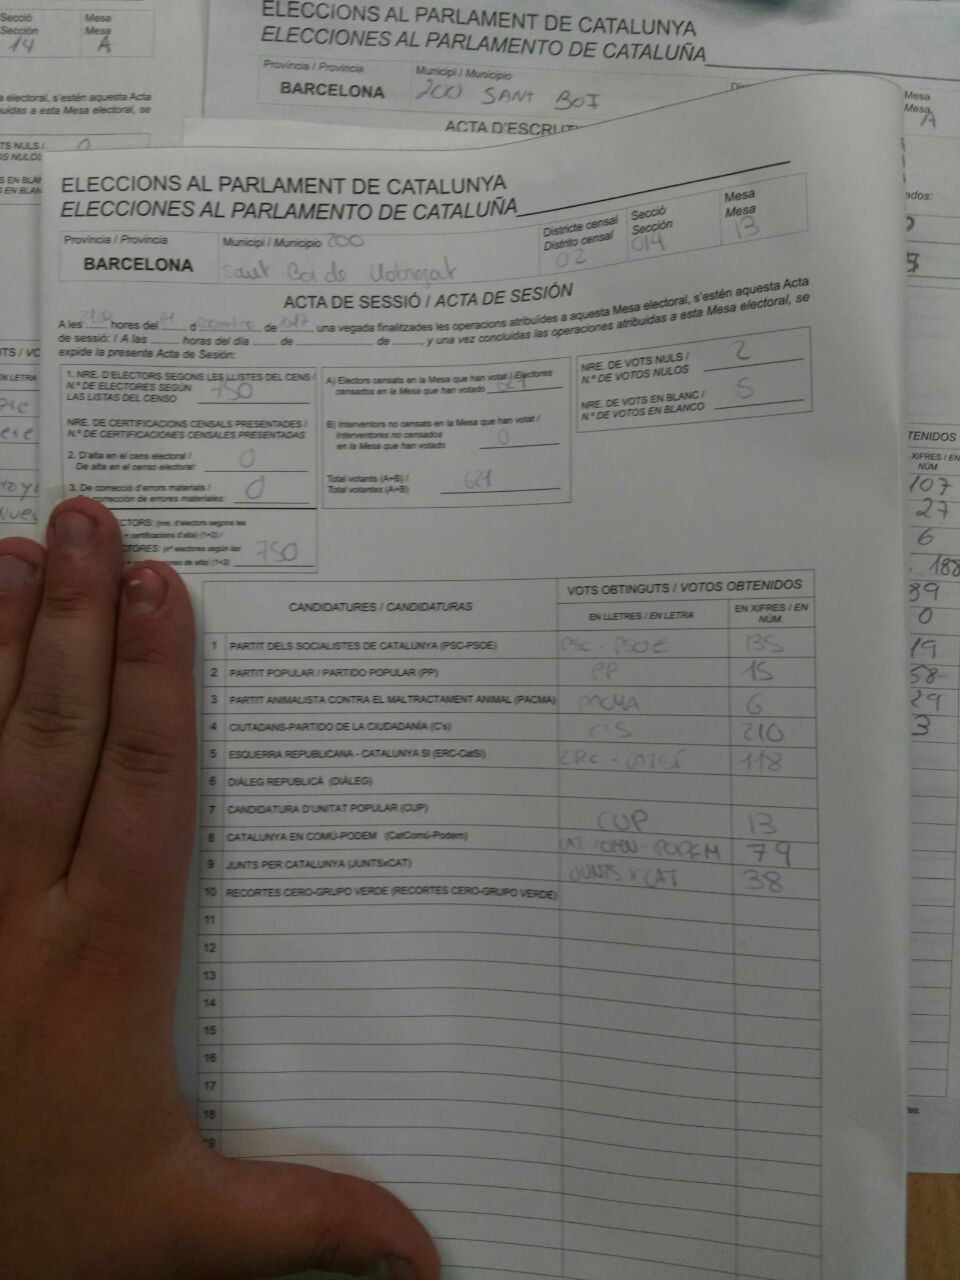 Secció
Sección
14
Mesa
Mesa
A
ELECCIONS AL PARLAMENT DE CATALUNYA
ELECCIONES AL PARLAMENTO DE CATALUÑA
Província / Provincia
BARCELONA
Municipi / Municipio
200 SANT BOI
Mesa
Mesa
A
ACTA D'ESCRUTI
ELECCIONS AL PARLAMENT DE CATALUNYA
ELECCIONES AL PARLAMENTO DE CATALUÑA
Província / Provincia
BARCELONA
Municipi / Municipio 200
Sant Boi de Llobregat
Districte censal
Distrito censal
02
Secció
Sección
014
Mesa
Mesa
B
ACTA DE SESSIÓ / ACTA DE SESIÓN
A les hores del 21 desembre de 2017, una vegada finalitzades les operacions atribuïdes a aquesta Mesa electoral, s'estén aquesta Acta
de sessió: / A las ____ horas del día ____ de ____ de ____, y una vez concluidas las operaciones atribuidas a esta Mesa electoral, se
expide la presente Acta de Sesión:
1. NRE. D'ELECTORS SEGONS LES LLISTES DEL CENS /
N.º DE ELECTORES SEGÚN
LAS LISTAS DEL CENSO 750
NRE. DE CERTIFICACIONS CENSALS PRESENTADES /
N.º DE CERTIFICACIONES CENSALES PRESENTADAS
2. D'alta en el cens electoral /
De alta en el censo electoral: 0
3. De correcció d'errors materials /
corrección de errores materiales: 0
CTORS: (nre. d'electors segons les
+ certificacions d'alta) (1+2) /
TORES: (nº electores según las
ones de alta) (1+2) 750
A) Electors censats en la Mesa que han votat / Electores
censados en la Mesa que han votado 621
B) Interventors no censats en la Mesa que han votat /
Interventores no censados
en la Mesa que han votado 0
Total votants (A+B) /
Total votantes (A+B) 621
NRE. DE VOTS NULS /
N.º DE VOTOS NULOS 2
NRE. DE VOTS EN BLANC /
N.º DE VOTOS EN BLANCO 5
CANDIDATURES / CANDIDATURAS
VOTS OBTINGUTS / VOTOS OBTENIDOS
EN LLETRES / EN LETRA
EN XIFRES / EN NÚM.
1 PARTIT DELS SOCIALISTES DE CATALUNYA (PSC-PSOE) PSC-PSOE 135
2 PARTIT POPULAR / PARTIDO POPULAR (PP) PP 15
3 PARTIT ANIMALISTA CONTRA EL MALTRACTAMENT ANIMAL (PACMA) PACMA 6
4 CIUTADANS-PARTIDO DE LA CIUDADANÍA (C's) C'S 210
5 ESQUERRA REPUBLICANA - CATALUNYA SI (ERC-CatSí) ERC-CATSÍ 118
6 DIÀLEG REPUBLICÀ (DIÀLEG)
7 CANDIDATURA D'UNITAT POPULAR (CUP) CUP 13
8 CATALUNYA EN COMÚ-PODEM (CatComú-Podem) CAT COMU-PODEM 79
9 JUNTS PER CATALUNYA (JUNTSxCAT) JUNTSXCAT 38
10 RECORTES CERO-GRUPO VERDE (RECORTES CERO-GRUPO VERDE)
11
12
13
14
15
16
17
18
19
TENIDOS
XIFRES / EN
NÚM.
107
27
6
188
89
0
19
58
29
3